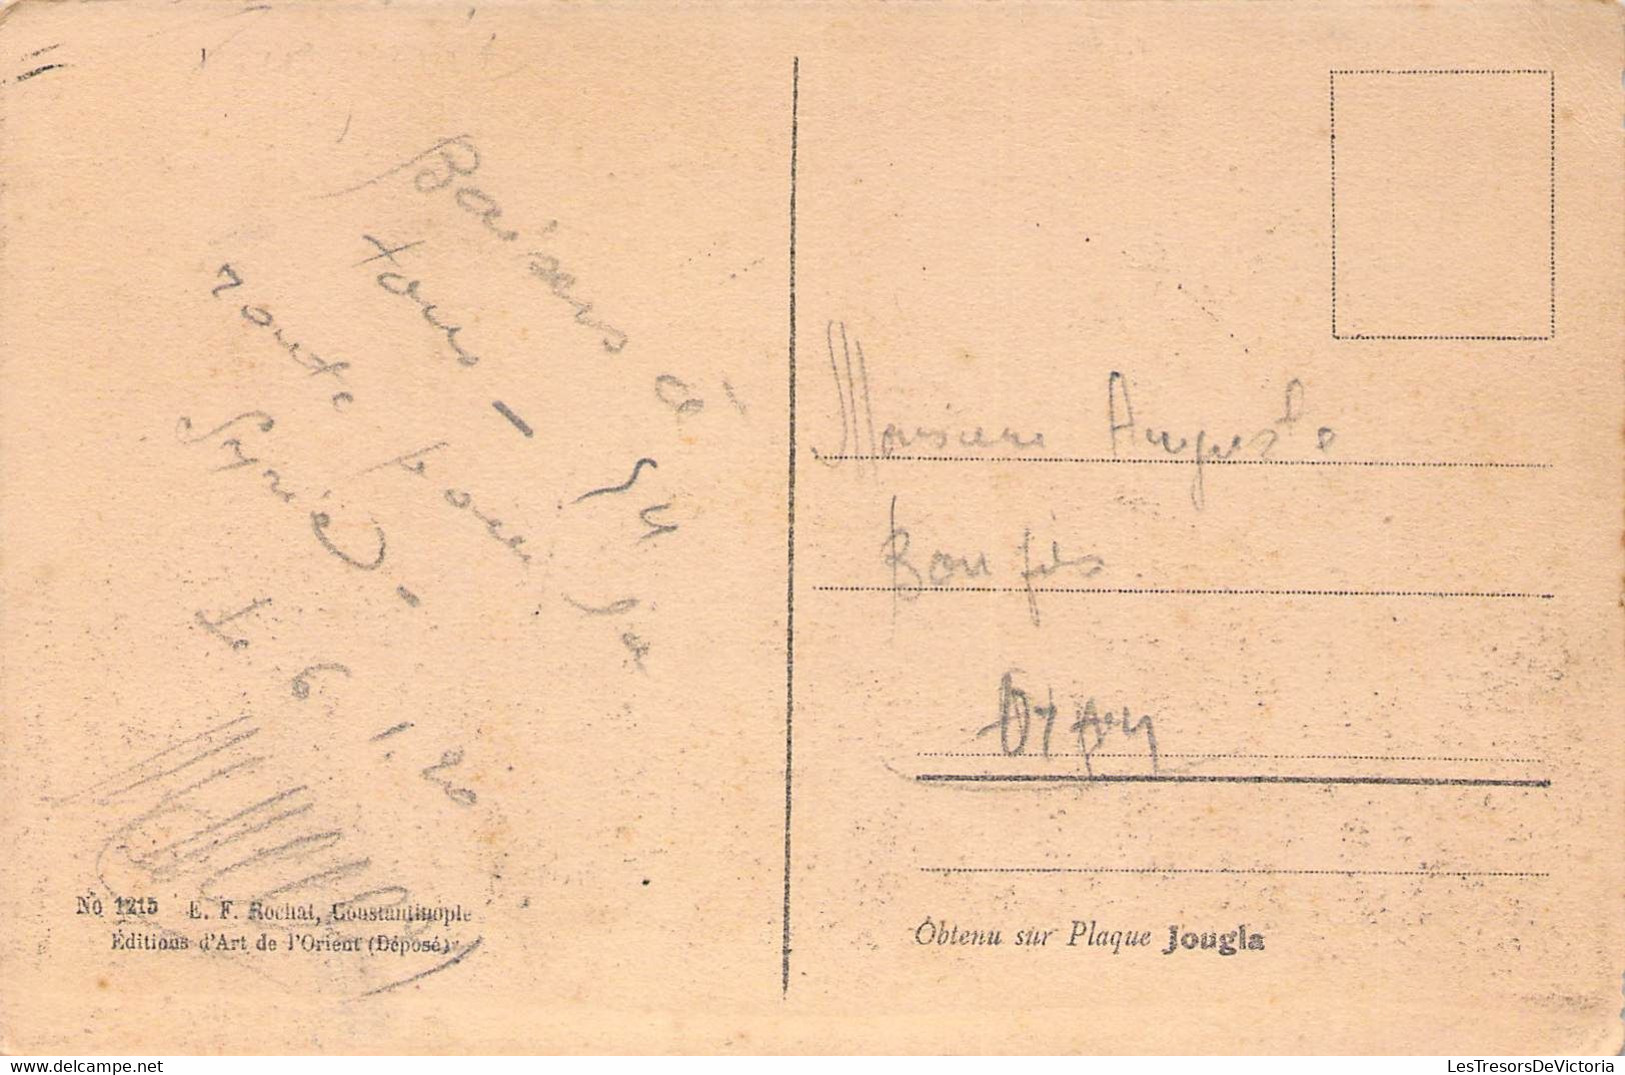 Baisers à
tous - En
route pour la
Syrie -
Le 6.1.20
No 1215 E. F. Rochat, Constantinople
Éditions d'Art de l'Orient (Déposé)
Monsieur Auguste
Bonfils
Obtenu sur Plaque Jougla
LesTresorsDeVictoria